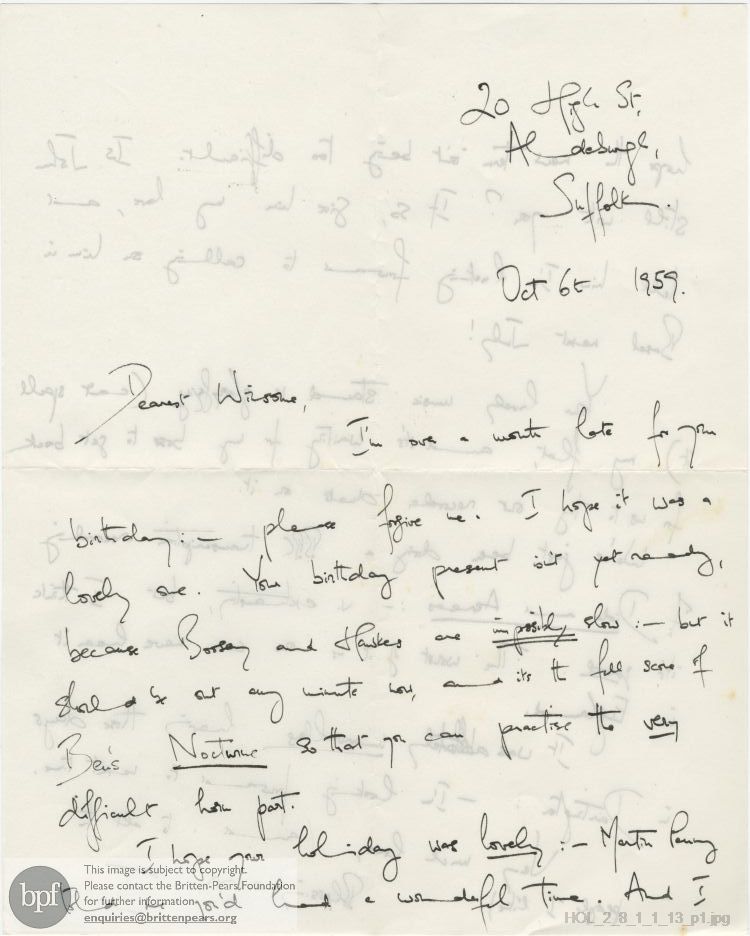 20 High St,
Aldeburgh,
Suffolk.
Oct 6th 1959.
Dearest Winsome,
I'm over a month late for your
birthday :— please forgive me. I hope it was a
lovely one. Your birthday present isn't yet ready,
because Boosey and Hawkes are impossibly slow :— but it
should be out any minute now, and its the full score of
Ben's Nocturne so that you can practise the very
difficult horn part.
I hope your holiday was lovely :— Martin Penny
me you'd had a wonderful time. And I
bpf
This image is subject to copyright.
Please contact the Britten-Pears Foundation
for further information
enquiries@brittenpears.org
HOL_2_8_1_1_13_p1.jpg